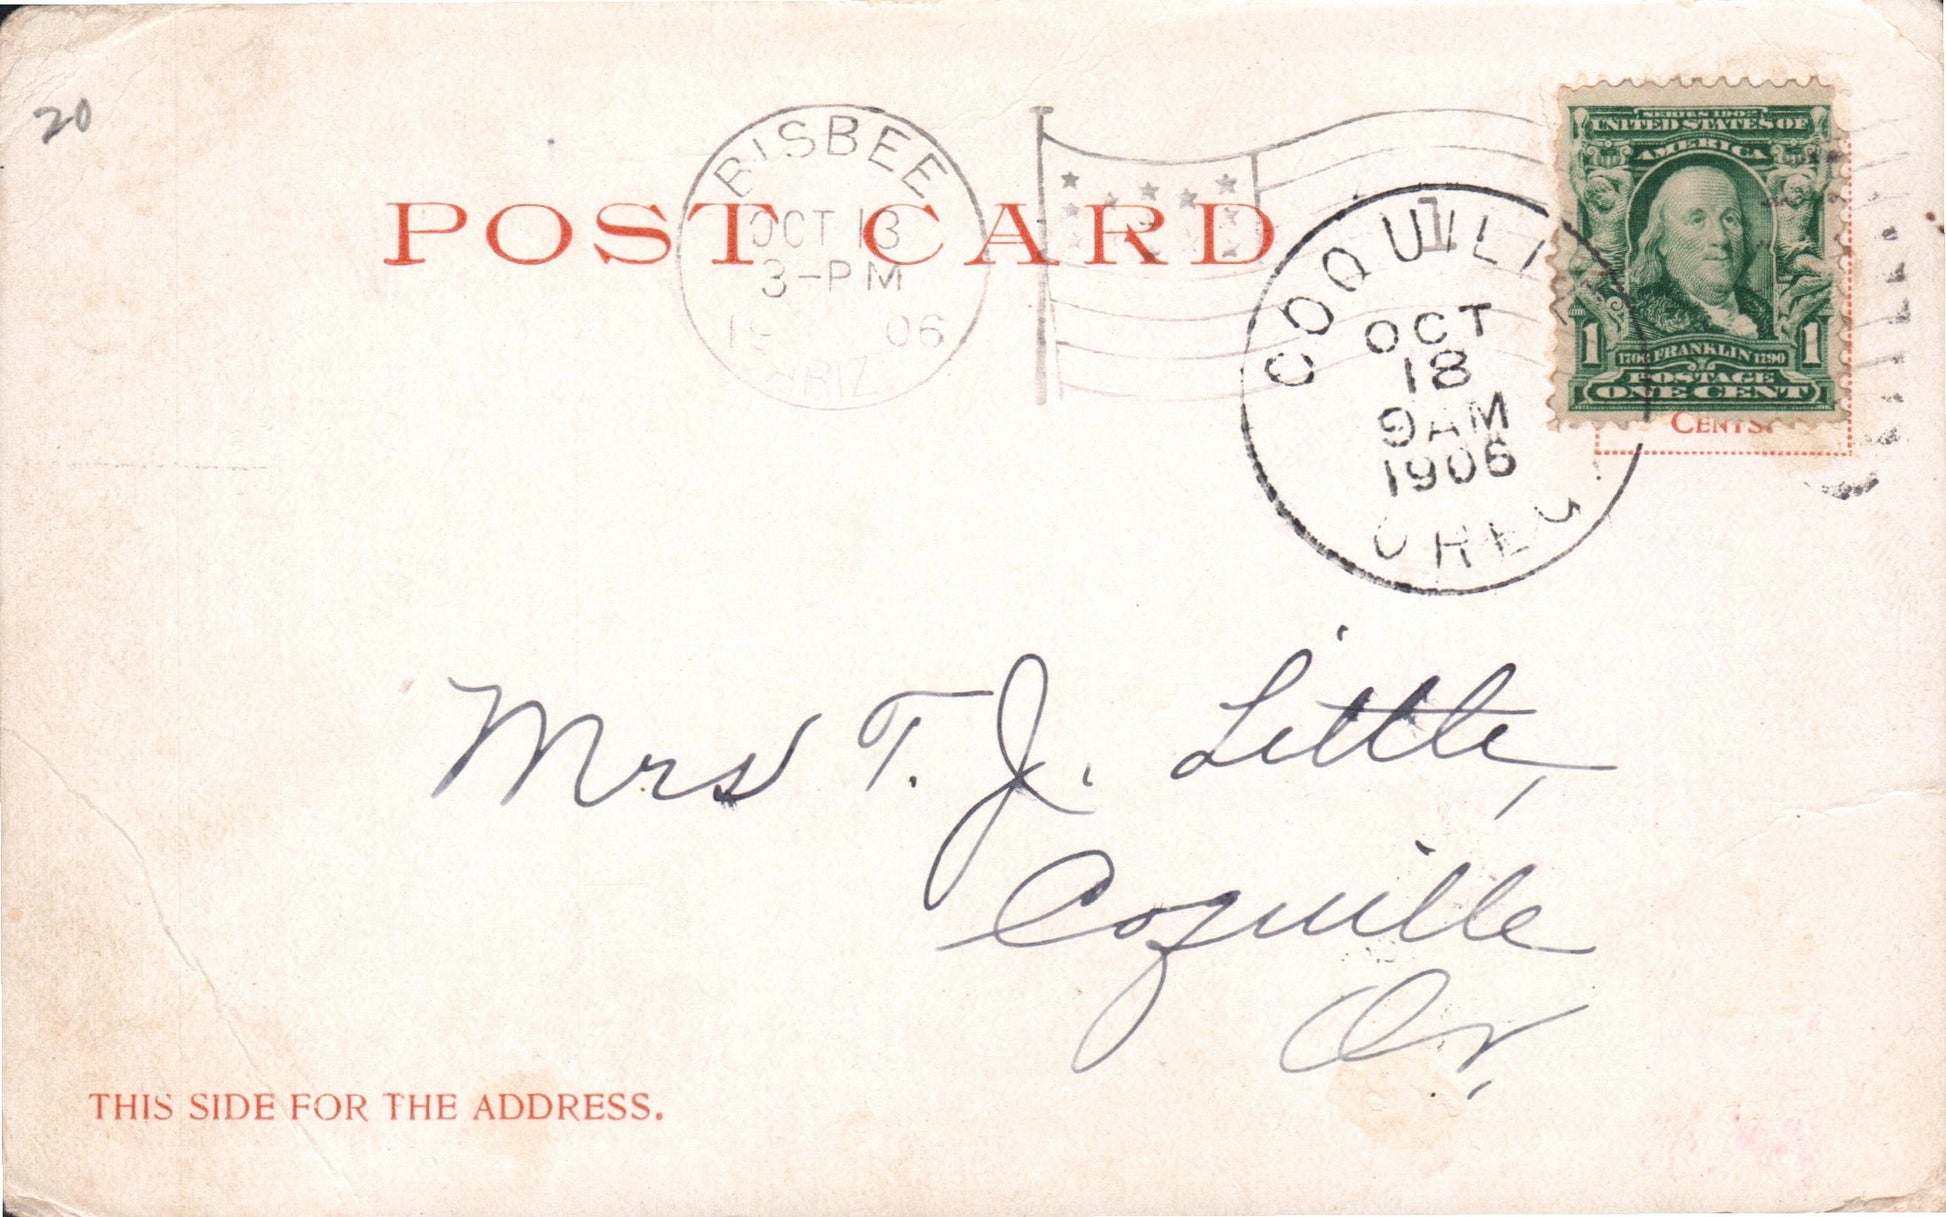 20
POST CARD
BISBEE
OCT 13
3-PM
19 06
ARIZ
1
COQUILLE
OCT
18
9 AM
1906
OREG
SERIES 1902
UNITED STATES OF
AMERICA
1706 FRANKLIN 1790
1 1
POSTAGE
ONE CENT
CENTS.
Mrs T. J. Little,
Coquille
Or,
THIS SIDE FOR THE ADDRESS.